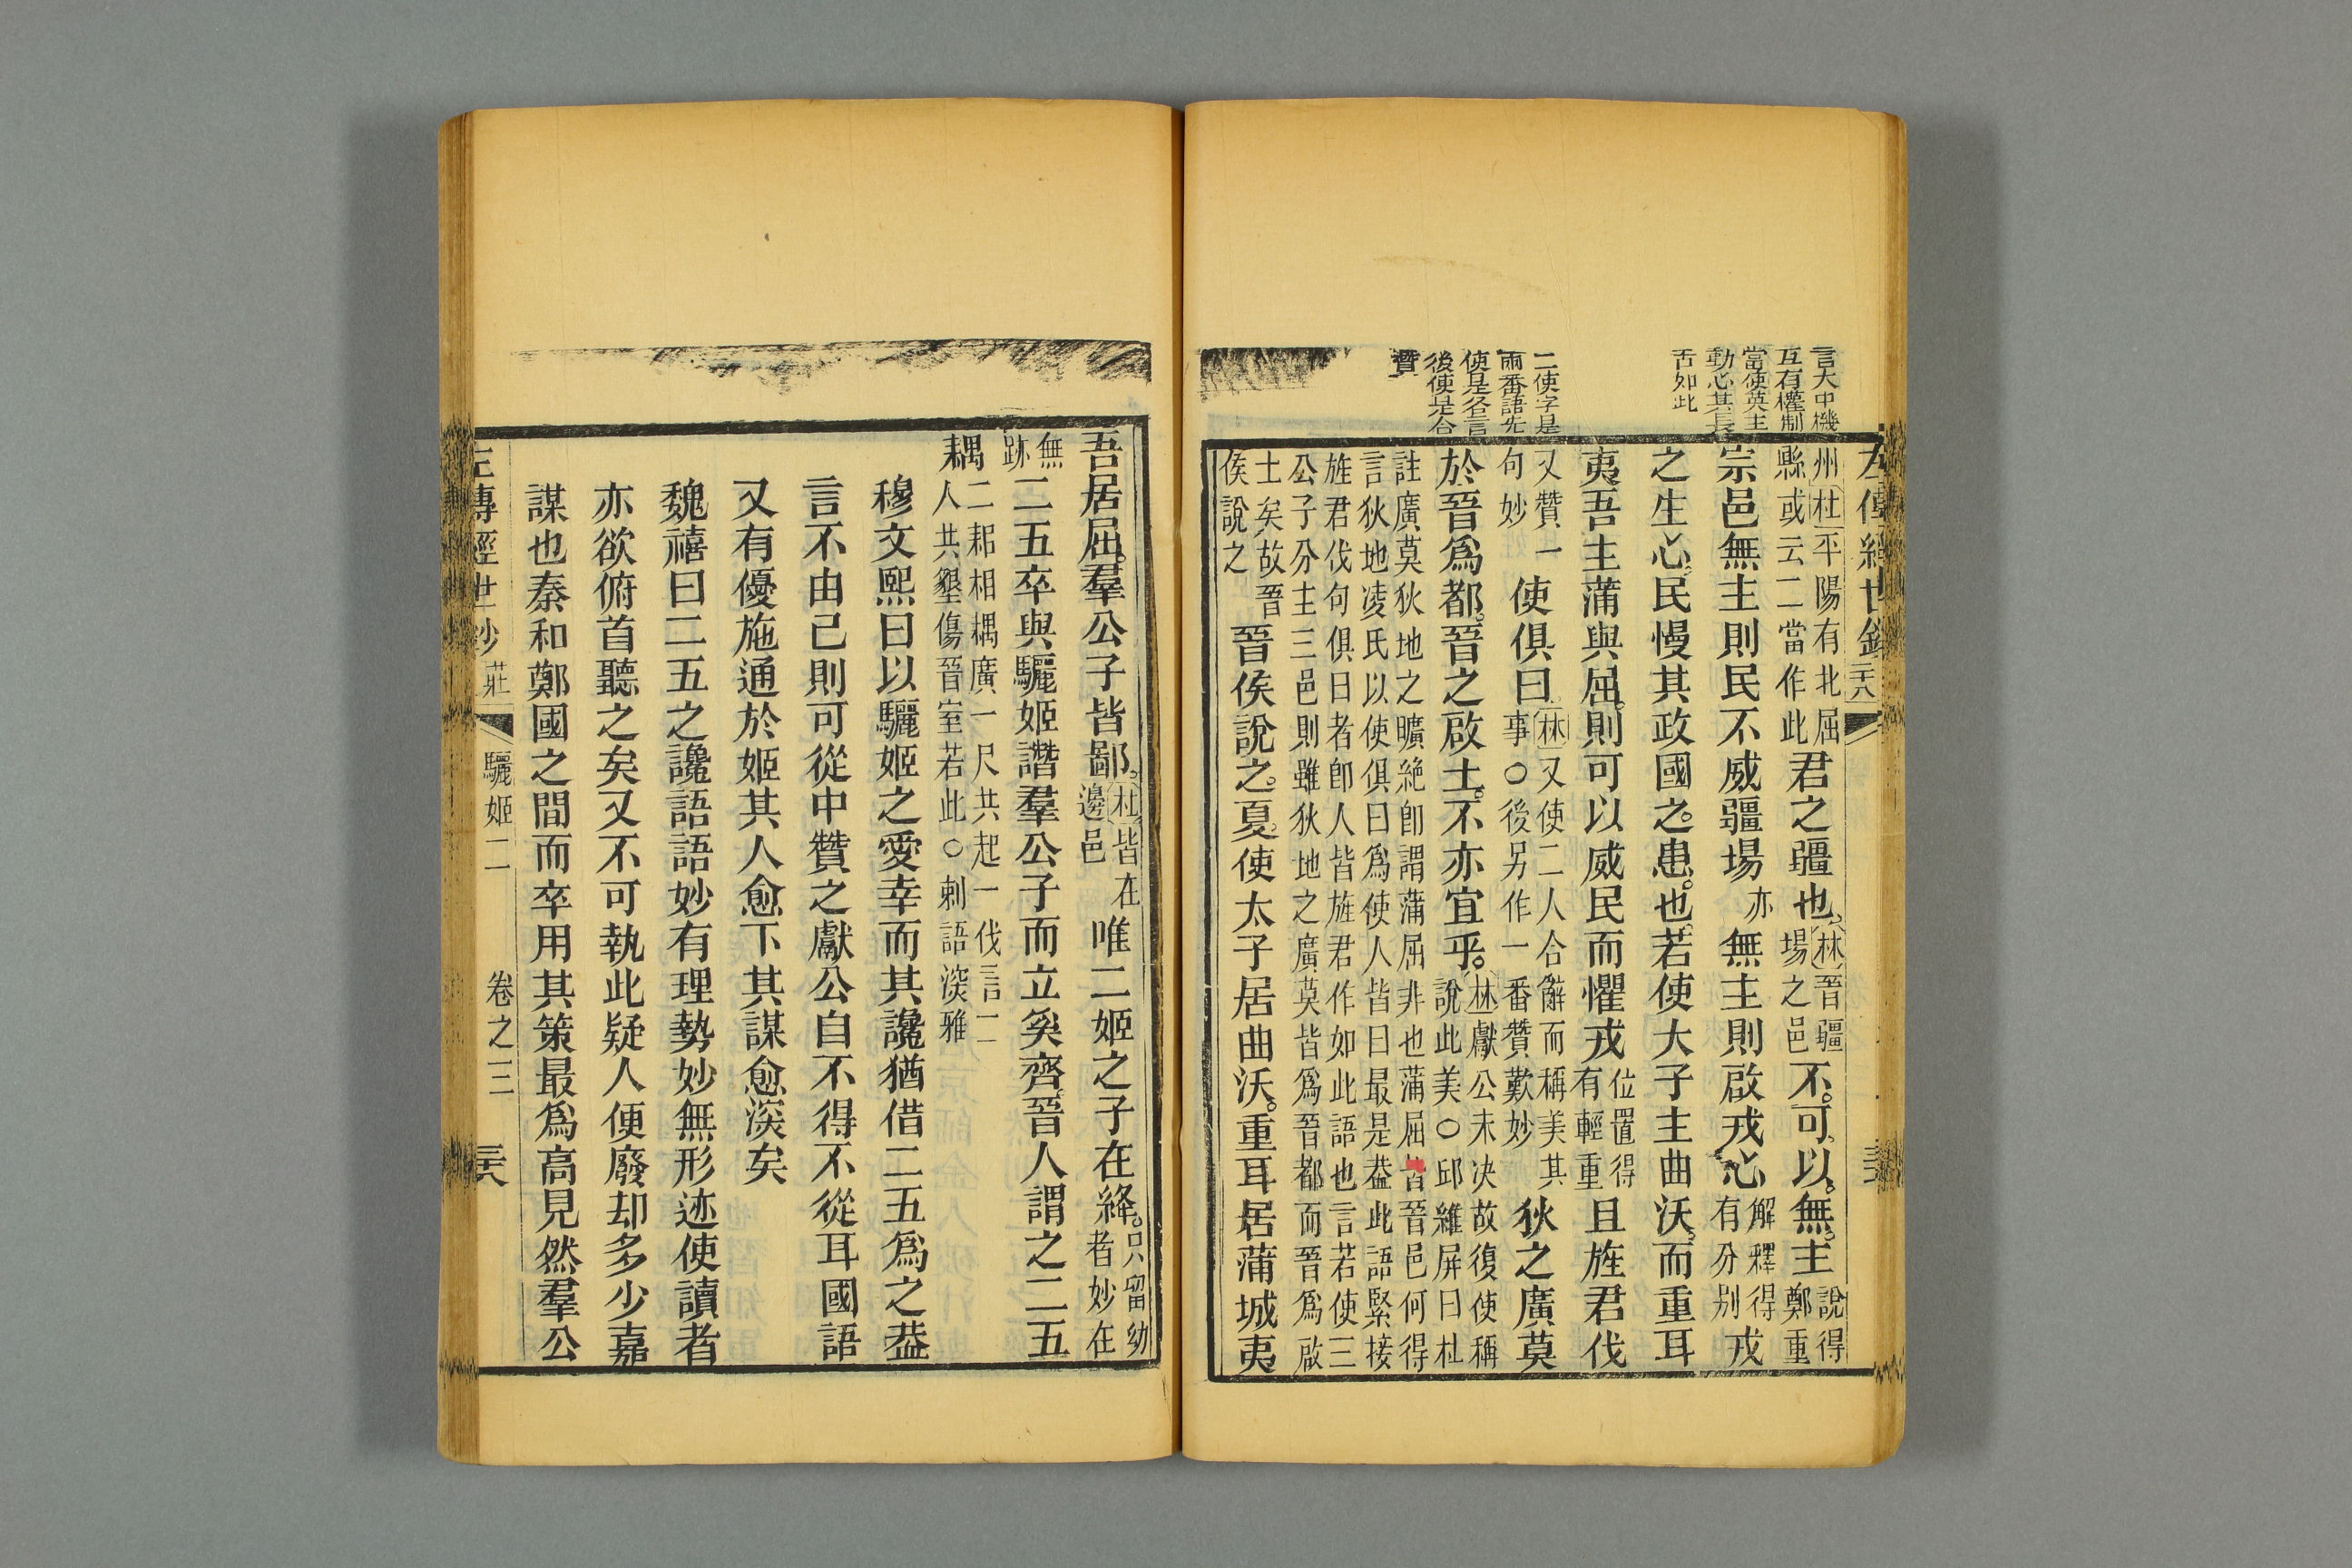 言大中機
互有權制
當使英主
動心其長
舌如此
二使字是
兩番語先
使是各言
後使是合
贊
左傳經世鈔
州杜平陽有北屈
縣或云二當作此
君之疆也
林晉疆
場之邑
不可以無主
說得
鄭重
宗邑無主則民不威疆場亦無主則啟戎心
解釋得
有分别
戎
之生心民慢其政國之患也若使大子主曲沃而重耳
夷吾主蒲與屈則可以威民而懼戎
位置得
有輕重
且旌君伐
又贊一
句妙
使俱曰
林又使二人合辭而稱美其
事○後另作一番贊歎妙
狄之廣莫
於晉爲都晉之啟土不亦宜乎
林獻公未决故復使稱
說此美○邱維屏曰杜
註廣莫狄地之曠絶卽謂蒲屈非也蒲屈皆晉邑何得
言狄地凌氏以使俱曰爲使人皆曰最是葢此語緊接
旌君伐句俱曰者卽人皆旌君作如此語也言若使三
公子分主三邑則雖狄地之廣莫皆爲晉都而晉爲啟
土矣故晉
侯說之
晉侯說之夏使太子居曲沃重耳居蒲城夷
吾居屈羣公子皆鄙
杜皆在
邊邑
唯二姬之子在絳
只留幼
者妙在
無
跡
二五卒與驪姬譖羣公子而立奚齊晉人謂之二五
耦
二耜相耦廣一尺共起一伐言二
人共墾傷晉室若此○刺語深雅
穆文熙曰以驪姬之愛幸而其讒猶借二五爲之葢
言不由己則可從中贊之獻公自不得不從耳國語
又有優施通於姬其人愈下其謀愈深矣
魏禧曰二五之讒語語妙有理勢妙無形迹使讀者
亦欲俯首聽之矣又不可執此疑人便廢却多少嘉
謀也秦和鄭國之間而卒用其策最爲高見然羣公
左傳經世鈔
莊
驪姬二
卷之三